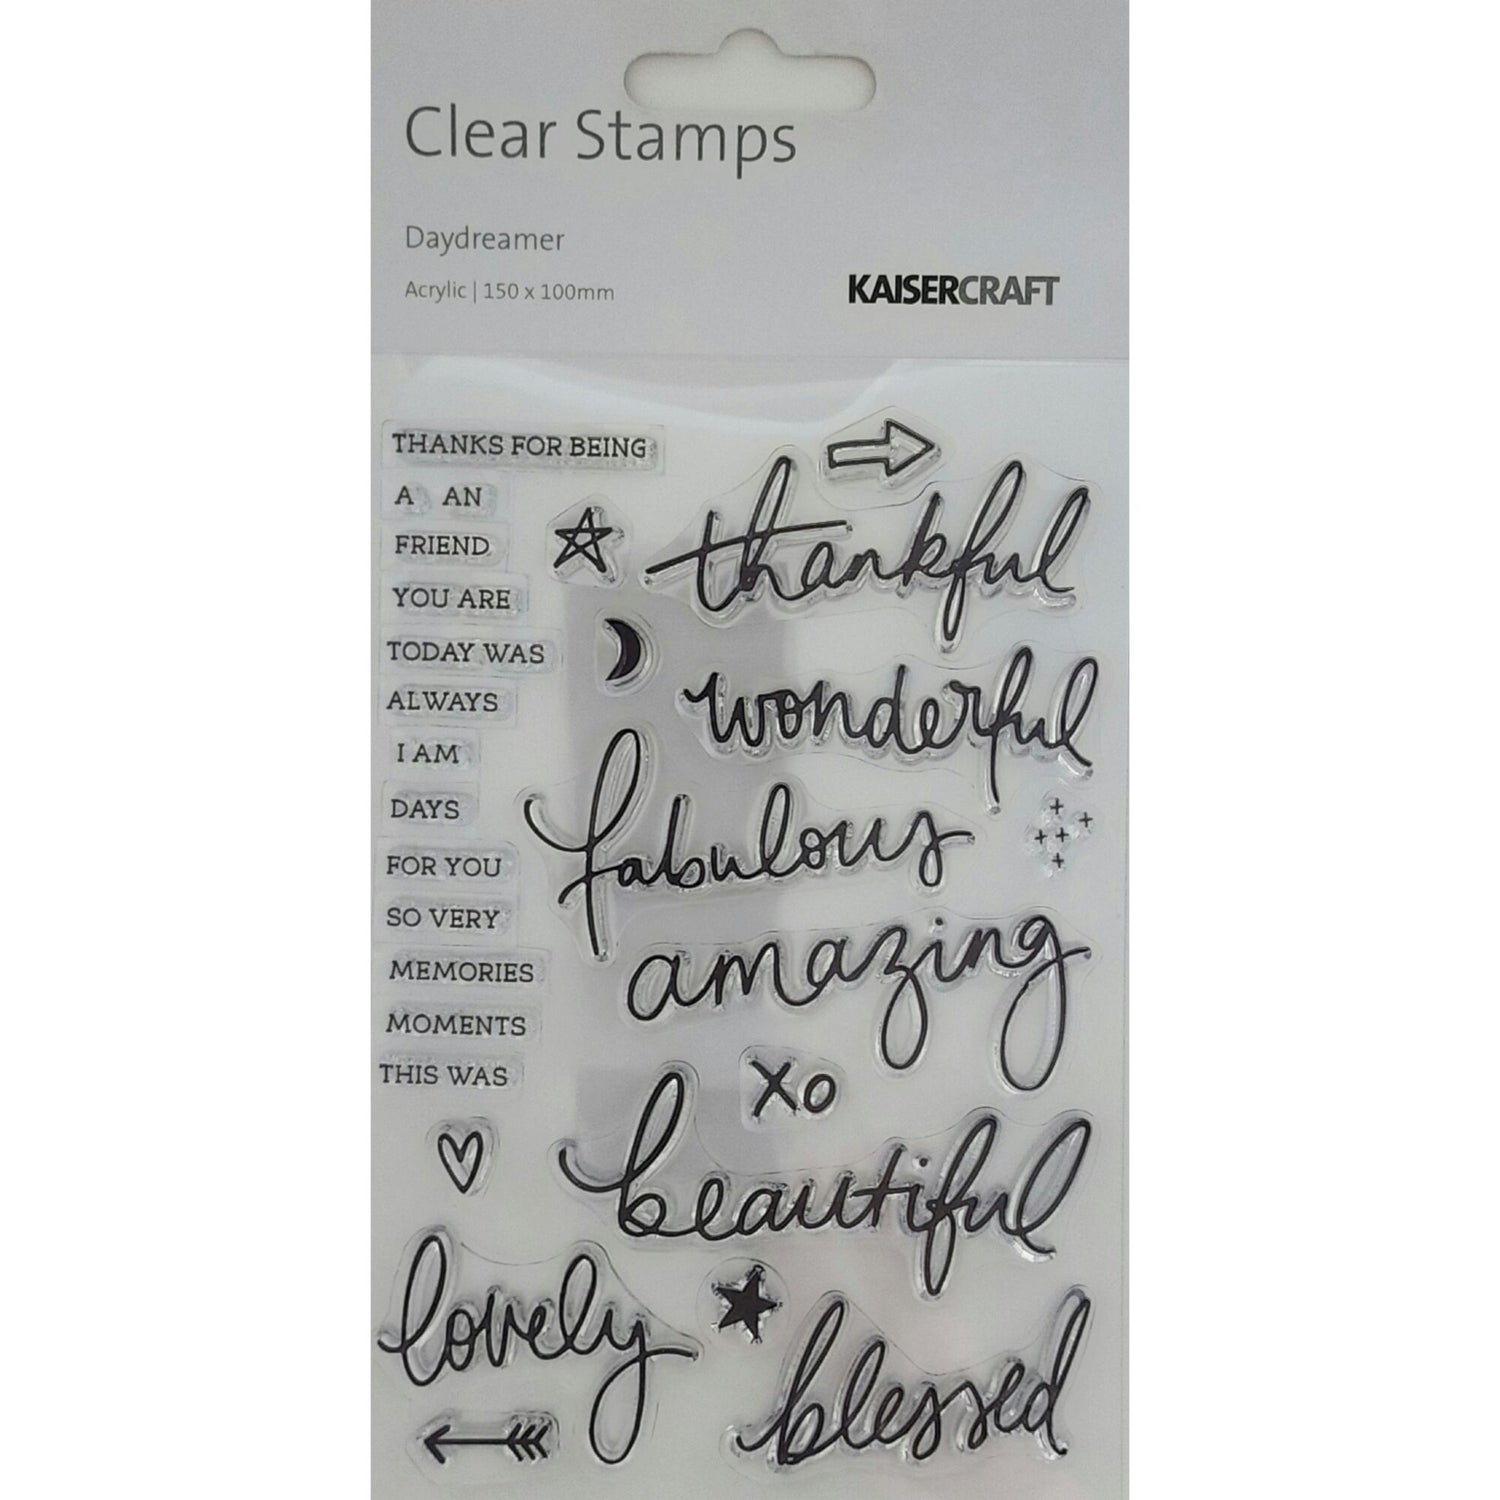 Clear Stamps
Daydreamer
Acrylic | 150 x 100mm
KAISERCRAFT
THANKS FOR BEING
A AN
FRIEND
YOU ARE
TODAY WAS
ALWAYS
I AM
DAYS
FOR YOU
SO VERY
MEMORIES
MOMENTS
THIS WAS
thankful
wonderful
fabulous
amazing
xo
beautiful
lovely
blessed